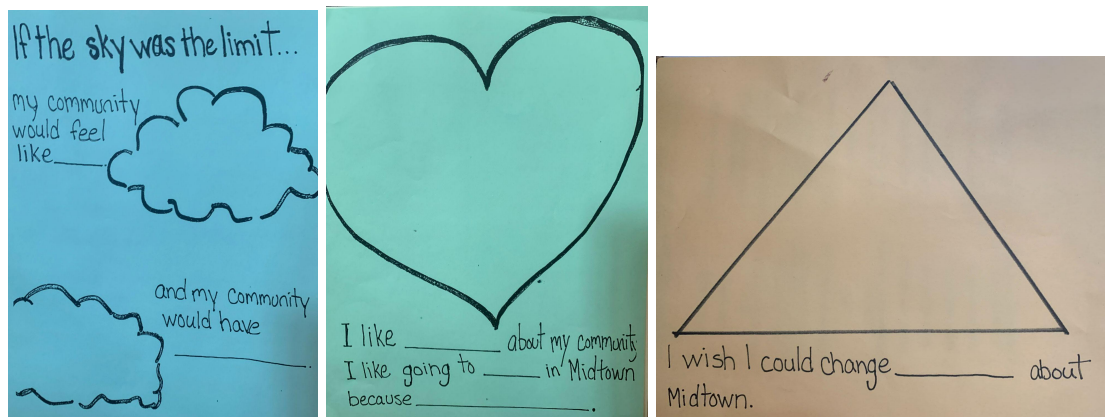 If the sky was the limit...
my community
would feel
like ______.
and my community
would have
____________.
I like ________ about my community
I like going to _____ in Midtown
because ______________.
I wish I could change __________ about
Midtown.